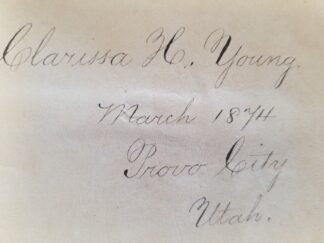 Clarissa H. Young.
March 1874
Provo City
Utah.